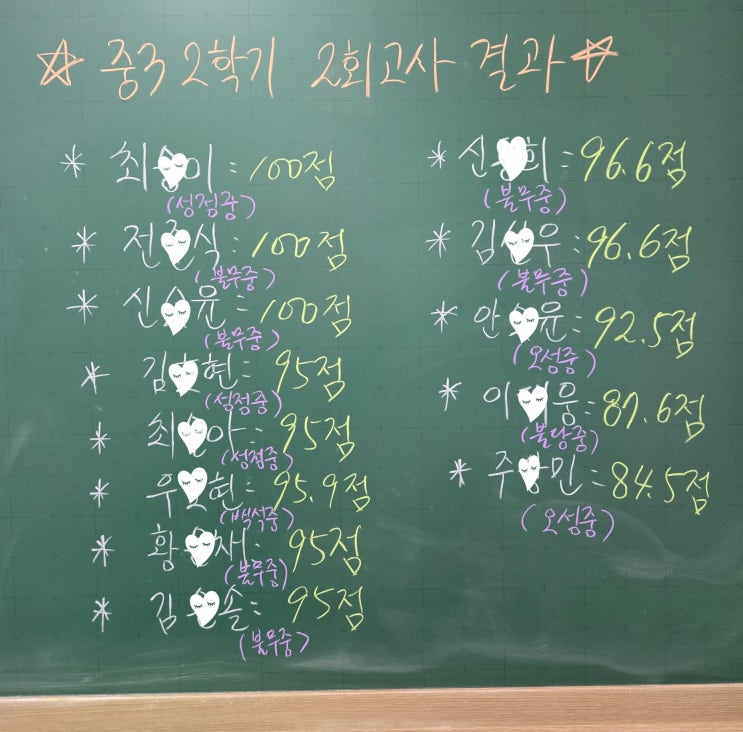 ☆ 중3 2학기 2회고사 결과 ☆
* 최 이 : 100점
(성정중)
* 전 식 : 100점
(불무중)
* 신 윤 : 100점
(불무중)
* 김 현 : 95점
(성정중)
* 최 아 : 95점
(성정중)
* 우 현 : 95.9점
(백석중)
* 황 재 : 95점
(불무중)
* 김 솔 : 95점
(불무중)
* 신 희 : 96.6점
(불무중)
* 김 우 : 96.6점
(불무중)
* 안 윤 : 92.5점
(오성중)
* 이 웅 : 87.6점
(불당중)
* 주 민 : 84.5점
(오성중)